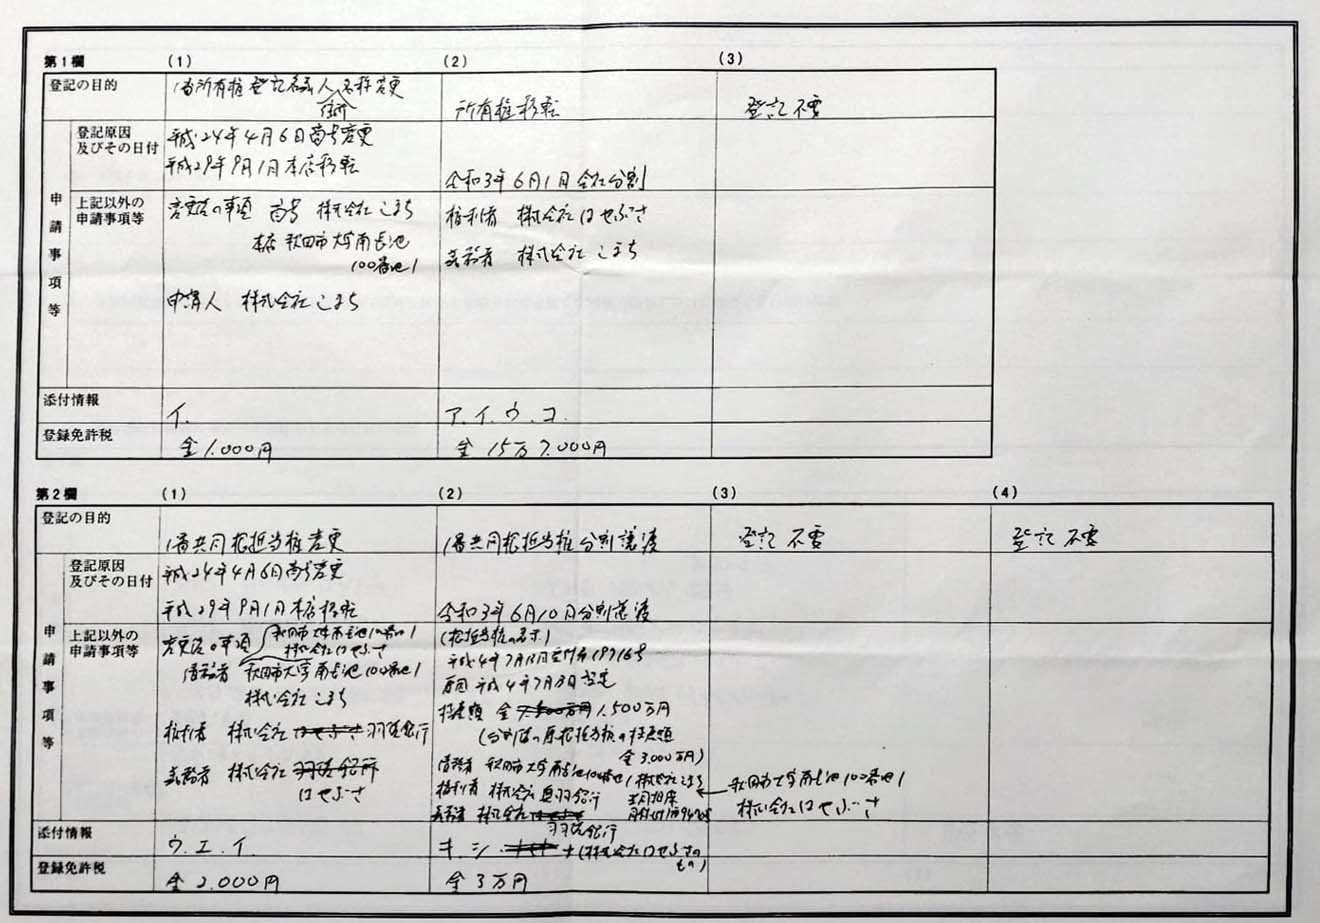 第1欄
(1)
(2)
(3)
登記の目的
1番所有権登記名義人名称変更
住所
所有権移転
登記不要
申請事項等
登記原因
及びその日付
平成24年4月6日商号変更
平成29年9月1日本店移転
令和3年6月1日会社分割
上記以外の
申請事項等
変更後の事項 商号 株式会社こまち
本店 秋田市大字南長池
100番地1
申請人 株式会社こまち
権利者 株式会社はやぶさ
義務者 株式会社こまち
添付情報
イ.
ア.イ.ウ.コ.
登録免許税
金1.000円
金15万7.000円
第2欄
(1)
(2)
(3)
(4)
登記の目的
1番共同根抵当権変更
1番共同根抵当権分割譲渡
登記不要
登記不要
申請事項等
登記原因
及びその日付
平成24年4月6日商号変更
平成29年9月1日本店移転
令和3年6月10日分割譲渡
上記以外の
申請事項等
変更後の事項
秋田市大字南長池100番地1
株式会社はやぶさ
債務者 秋田市大字南長池100番地1
株式会社こまち
権利者 株式会社はやぶさ羽後銀行
義務者 株式会社羽後銀行
はやぶさ
(根抵当権の表示)
原因 平成4年7月13日設定
極度額 金1.500万円
(分割後の原根抵当権の極度額
金3.000万円)
債務者 秋田市大字南長池100番地1 株式会社こまち
権利者 株式会社奥羽銀行
義務者 株式会社はやぶさ
羽後銀行
秋田市大字南長池100番地1
株式会社はやぶさ
添付情報
ウ.エ.イ.
キ.シ.
(株式会社はやぶさの
もの)
登録免許税
金2.000円
金3万円